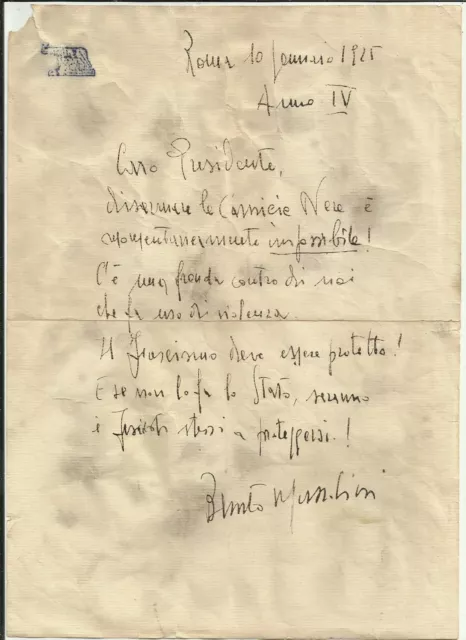 Roma 10 Gennaio 1925
Anno IV
Caro Presidente,
disarmare le Camicie Nere è
momentaneamente impossibile!
C'è una fronda contro di noi
che fa uso di violenza.
Il Fascismo deve essere protetto!
E se non lo fa lo Stato, saranno
i Fascisti stessi a proteggersi!
Benito Mussolini